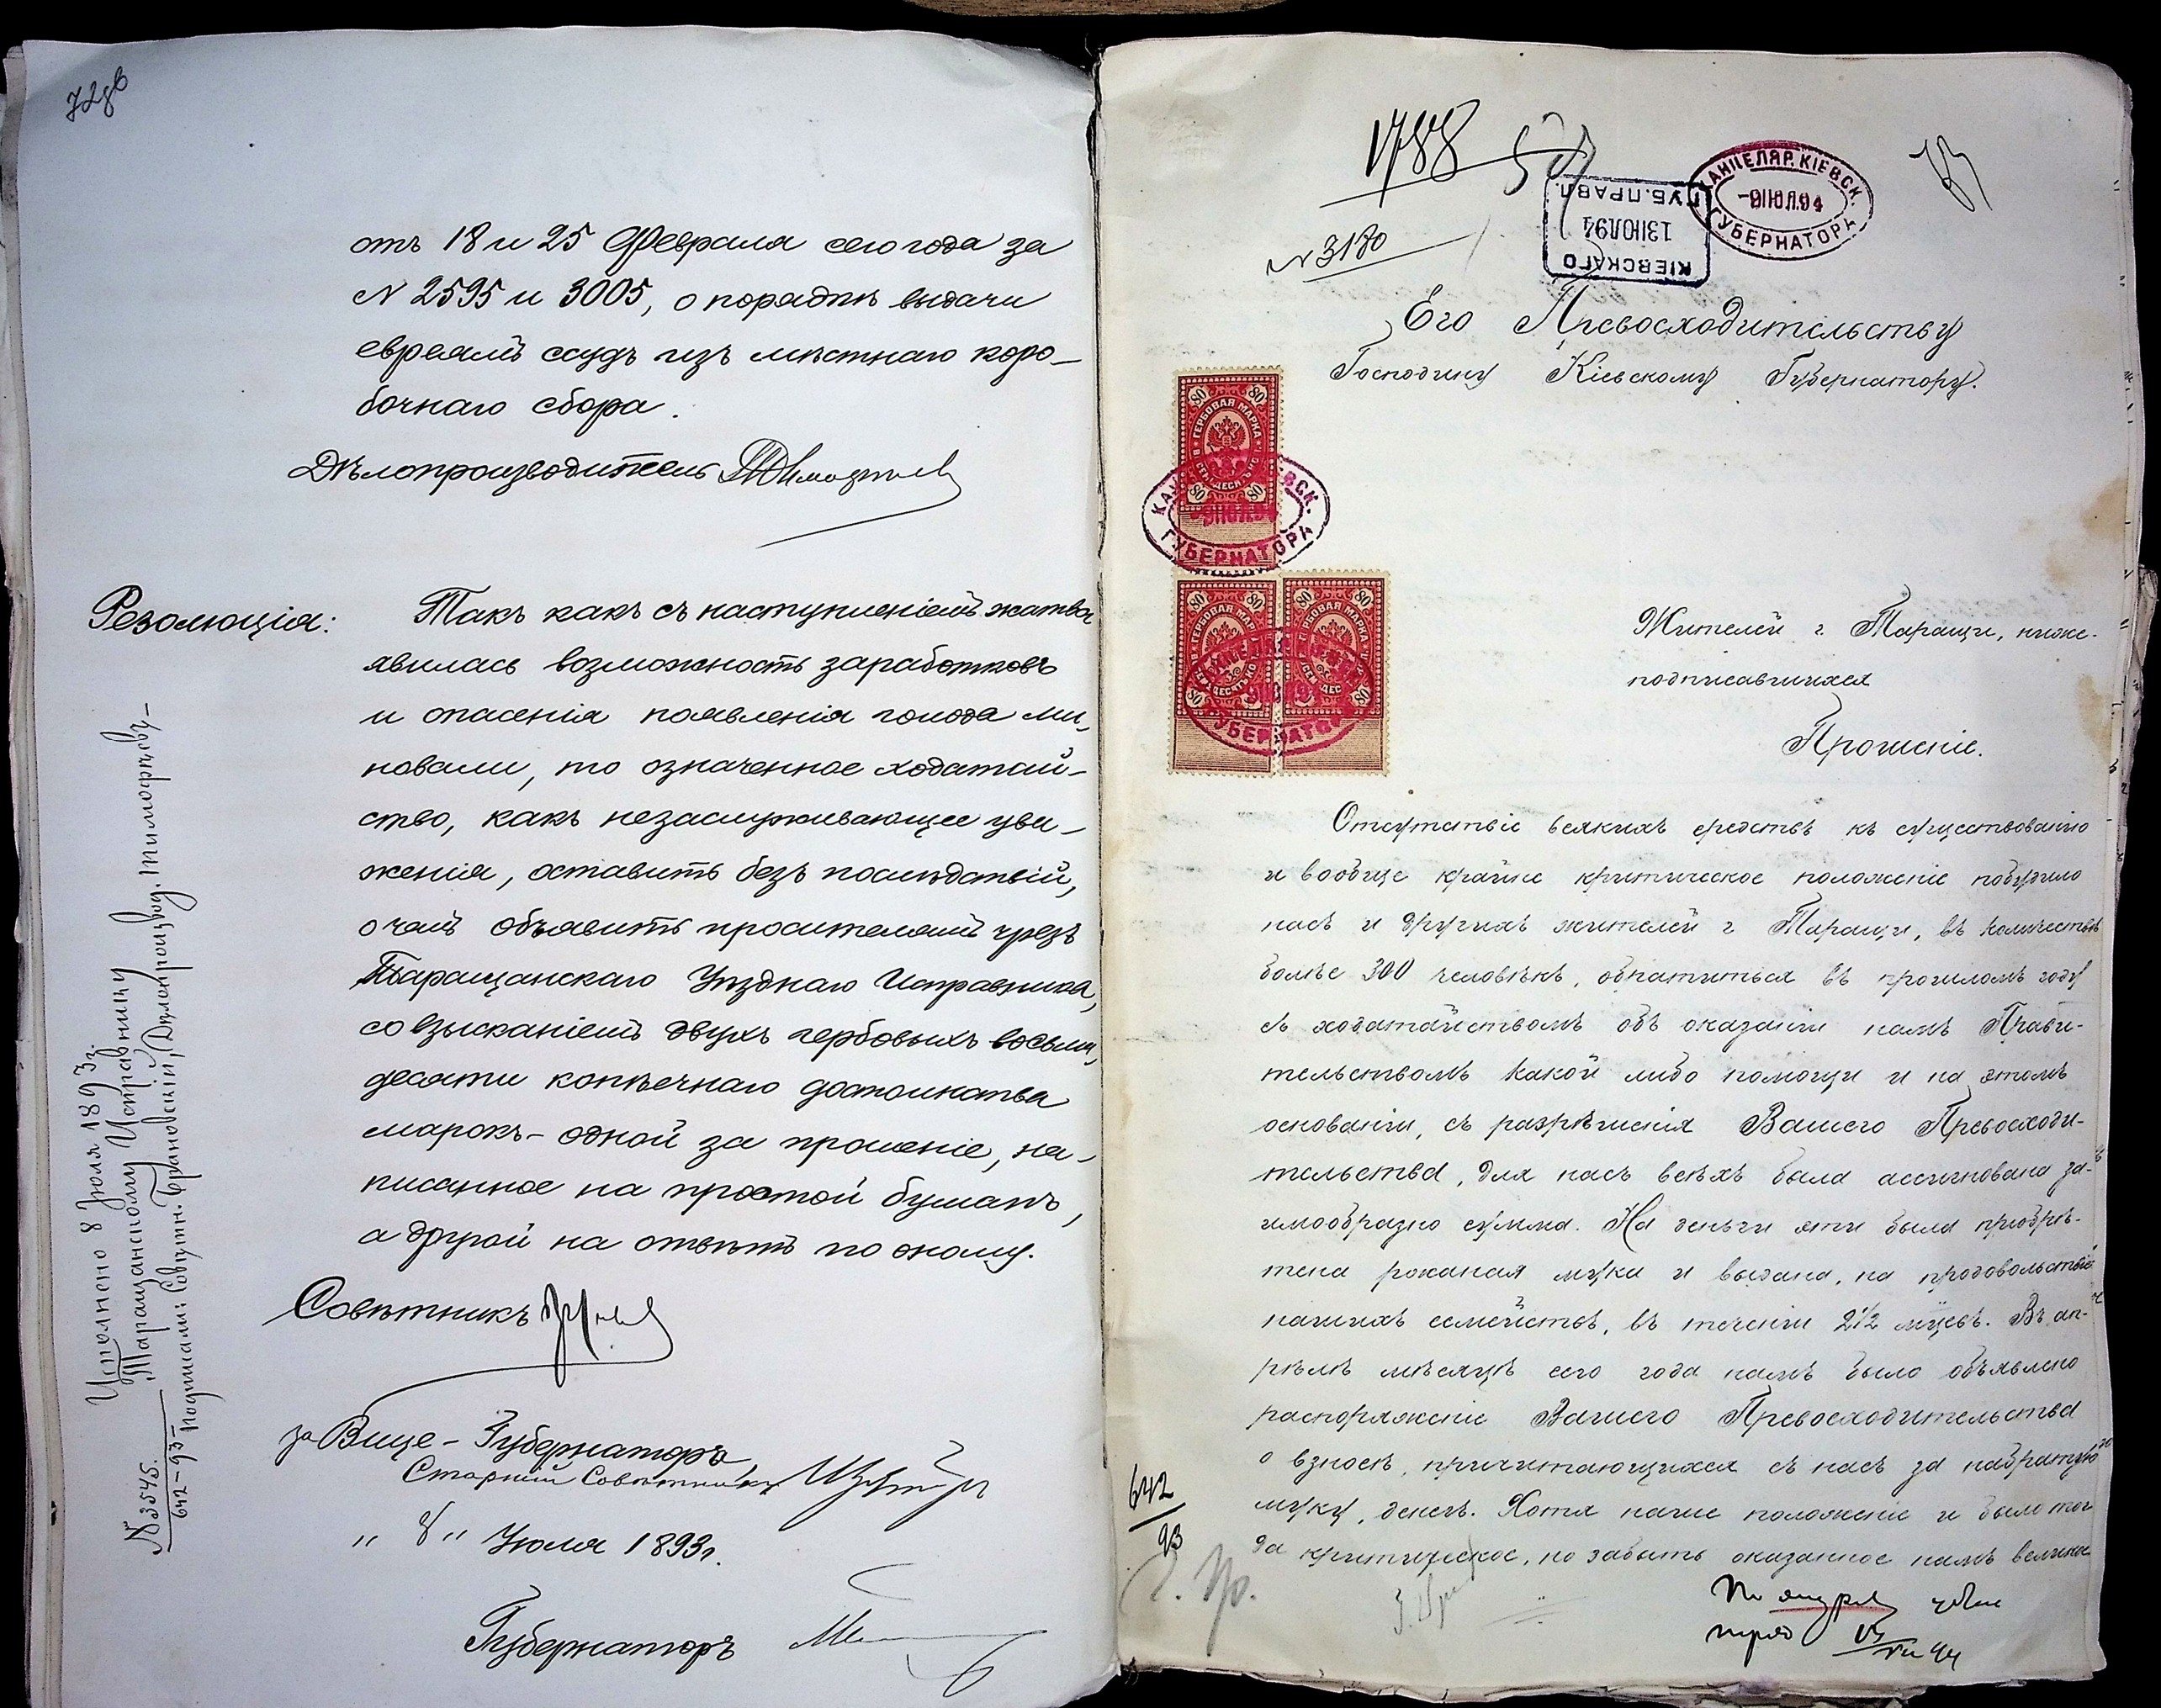 72об
отъ 18 и 25 Февраля сего года за
№ 2595 и 3005, о порядкѣ выдачи
евреямъ ссудъ изъ мѣстнаго коро-
бочнаго сбора.
Дѣлопроизводитель
Резолюція:
Такъ какъ съ наступленіемъ жатвы
явилась возможность заработковъ
и опасенія появленія голода ми-
новали, то означенное ходатай-
ство, какъ незаслуживающее ува-
женія, оставить безъ послѣдствій,
о чемъ объявить просителямъ чрезъ
Таращанскаго Уѣзднаго Исправника,
со взысканіемъ двухъ гербовыхъ восьми-
десяти копѣечнаго достоинства
марокъ - одной за прошеніе, на-
писанное на простой бумагѣ,
а другой на отвѣтъ по оному.
Совѣтникъ
за Вице-Губернатора,
Старшій Совѣтникъ
"8" Іюля 1893 г.
Губернаторъ
Исполнено 8 Іюля 1893 г.
Таращанскому Исправнику
№ 3545.
642-93
подписали: Совѣтн. Брановскій, Дѣлопроизвод.
1788
КАНЦЕЛЯР. КІЕВСК.
-9 ІЮЛ. 94
ГУБЕРНАТОРА
КІЕВСКАГО
13 ІЮЛ 94
ГУБ. ПРАВЛ.
73
№ 3180
Его Превосходительству
Господину Кіевскому Губернатору.
80 80
ГЕРБОВАЯ МАРКА
80 80
КАНЦЕЛЯР. КІЕВСК.
ГУБЕРНАТОРА
80 80 80 80
ГЕРБОВАЯ МАРКА
80 80
ГУБЕРНАТОРА
Жителей г. Таращи, ниже-
подписавшихся
Прошеніе.
Отсутствіе всякихъ средствъ къ существованію
и вообще крайне критическое положеніе побудило
насъ и другихъ жителей г. Таращи, въ количествѣ
болѣе 300 человѣкъ, обратиться въ прошломъ году
съ ходатайствомъ объ оказаніи намъ Прави-
тельствомъ какой либо помощи и на этомъ
основаніи, съ разрѣшенія Вашего Превосходи-
тельства, для насъ всѣхъ была ассигнована за-
имообразно сумма. На деньги эти была пріобрѣ-
тена ржаная мука и выдана, на продовольствіе
нашихъ семействъ, въ теченіи 2 1/2 мѣсцевъ. Въ ап-
рѣлѣ мѣсяцѣ сего года намъ было объявлено
распоряженіе Вашего Превосходительства
о взносѣ, причитающихся съ насъ за набратую
муку, денегъ. Хотя наше положеніе и было тог
да критическое, но забыть оказанное намъ велико
642
93